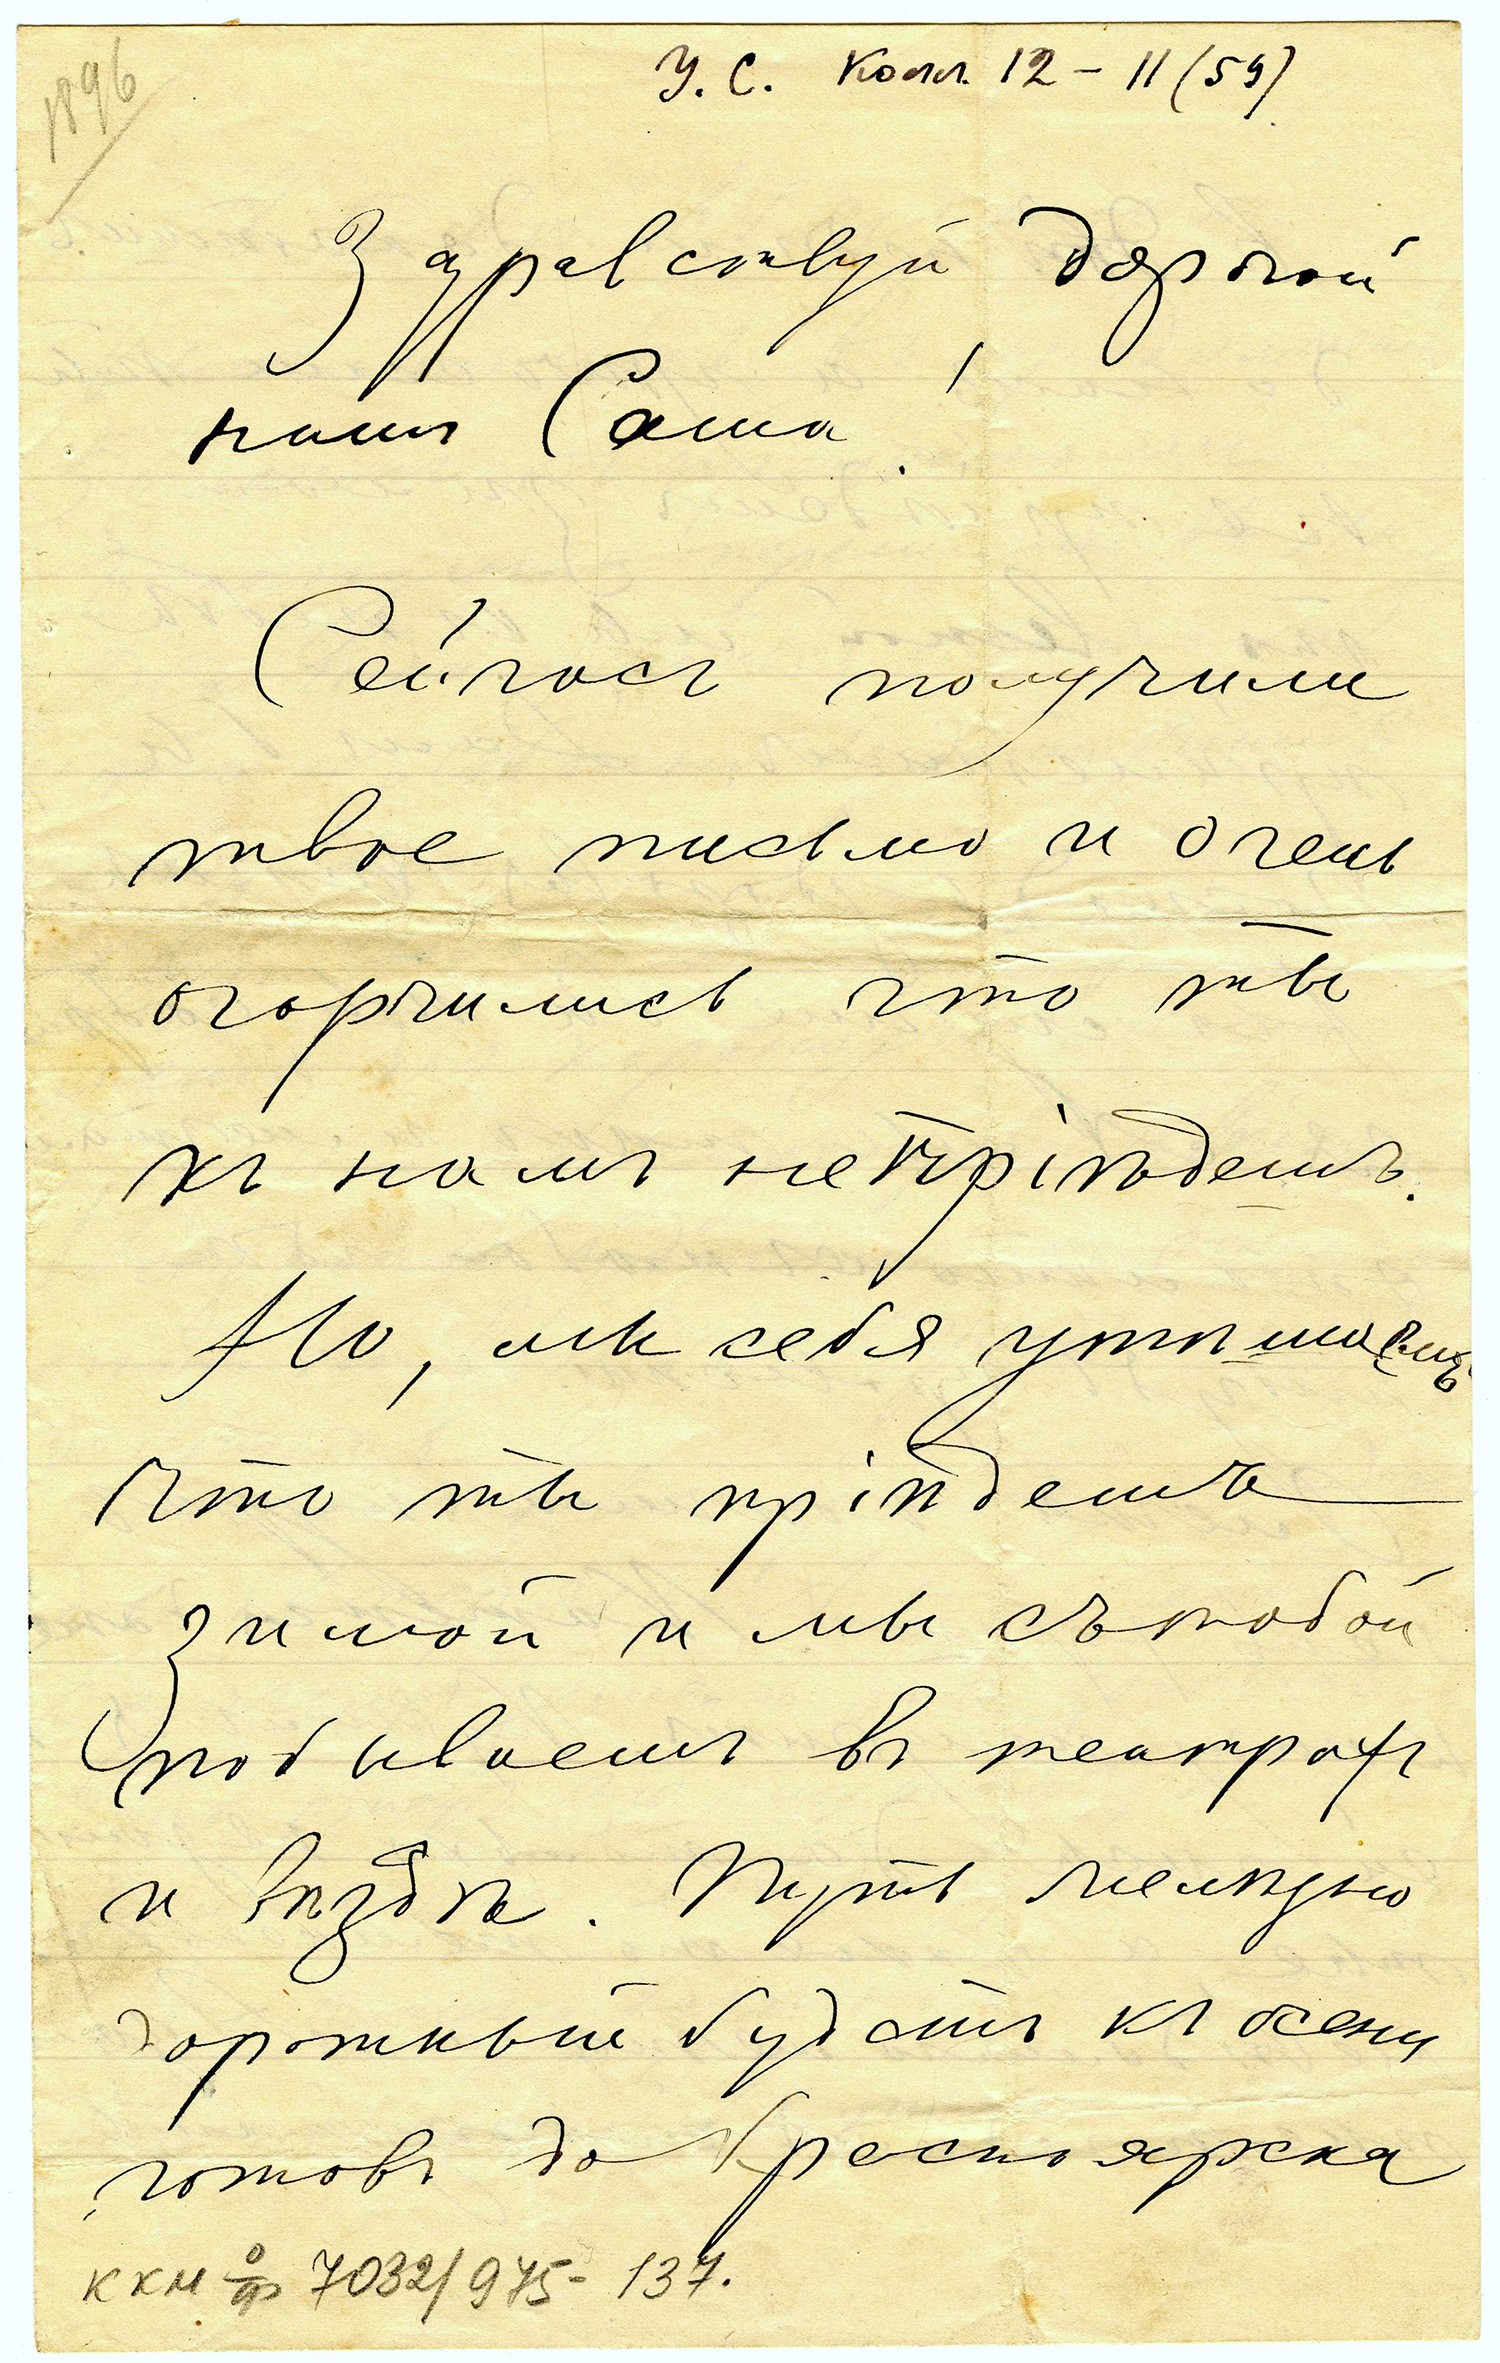 1896
У. С. Колл. 12 – 11 (59)
Здравствуй дорогой
нашъ Саша!
Сейчасъ получили
твое письмо и очень
огорчились что ты
къ намъ не пріѣдешъ.
Но, мы себя утѣшаемъ
что ты пріѣдешъ
зимой и мы съ тобой
побываемъ въ театрахъ
и вѣздѣ. Путь желѣзно
дорожный будетъ къ осени
готовъ до Красноярска
ККМ о/ф 7032/975- 137.